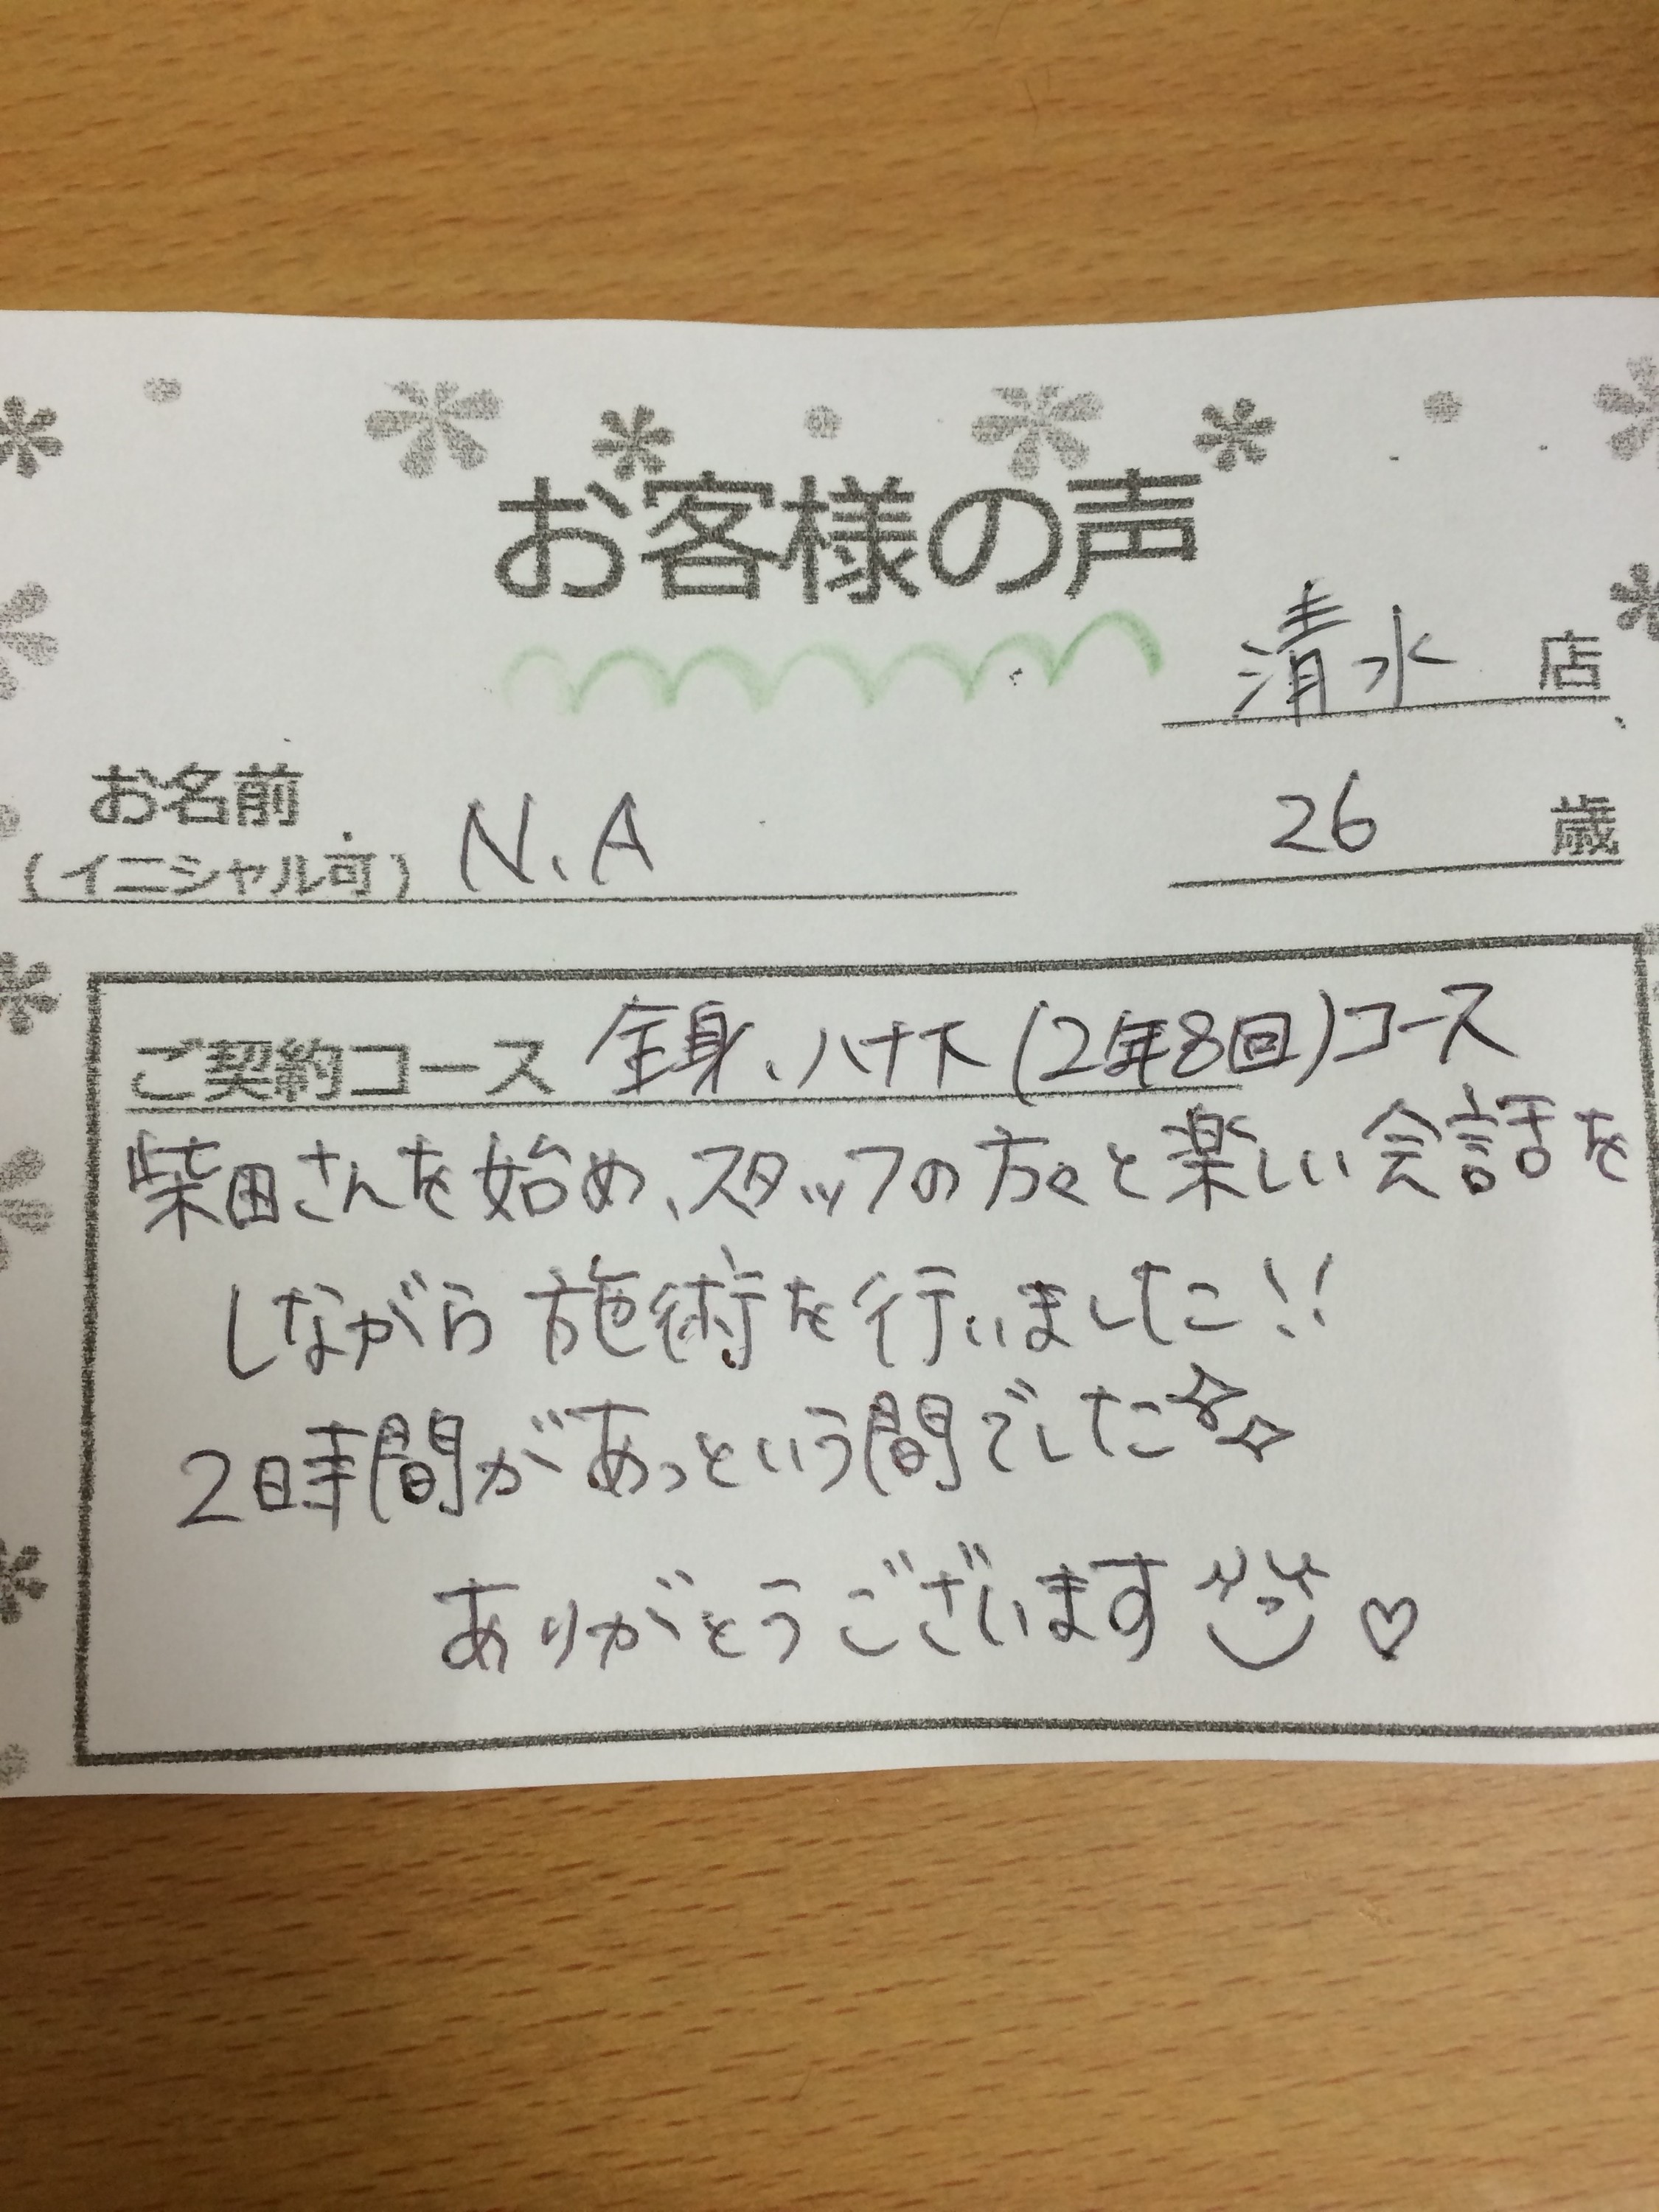 お客様の声
清水 店
お名前
(イニシャル可) N.A
26 歳
ご契約コース 全身、ハナ下(2年8回)コース
柴田さんを始め、スタッフの方々と楽しい会話を
しながら施術を行いました!!
2時間があっという間でした
ありがとうございます